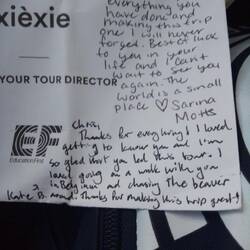 everything you
have done and
making this trip
one I will never
forget. Best of luck
to you in your
life and I can't
wait to see you
again. The
world is a small
place ♡ Sarina
Motts
xièxie
YOUR TOUR DIRECTOR
EF
Education First
Chris,
Thanks for everything! I loved
getting to know you and I'm
so glad that you led this tour. I
love going on a walk with you
in Beijing and chasing the beaver
around. Thanks for making this trip great!
Kate B.